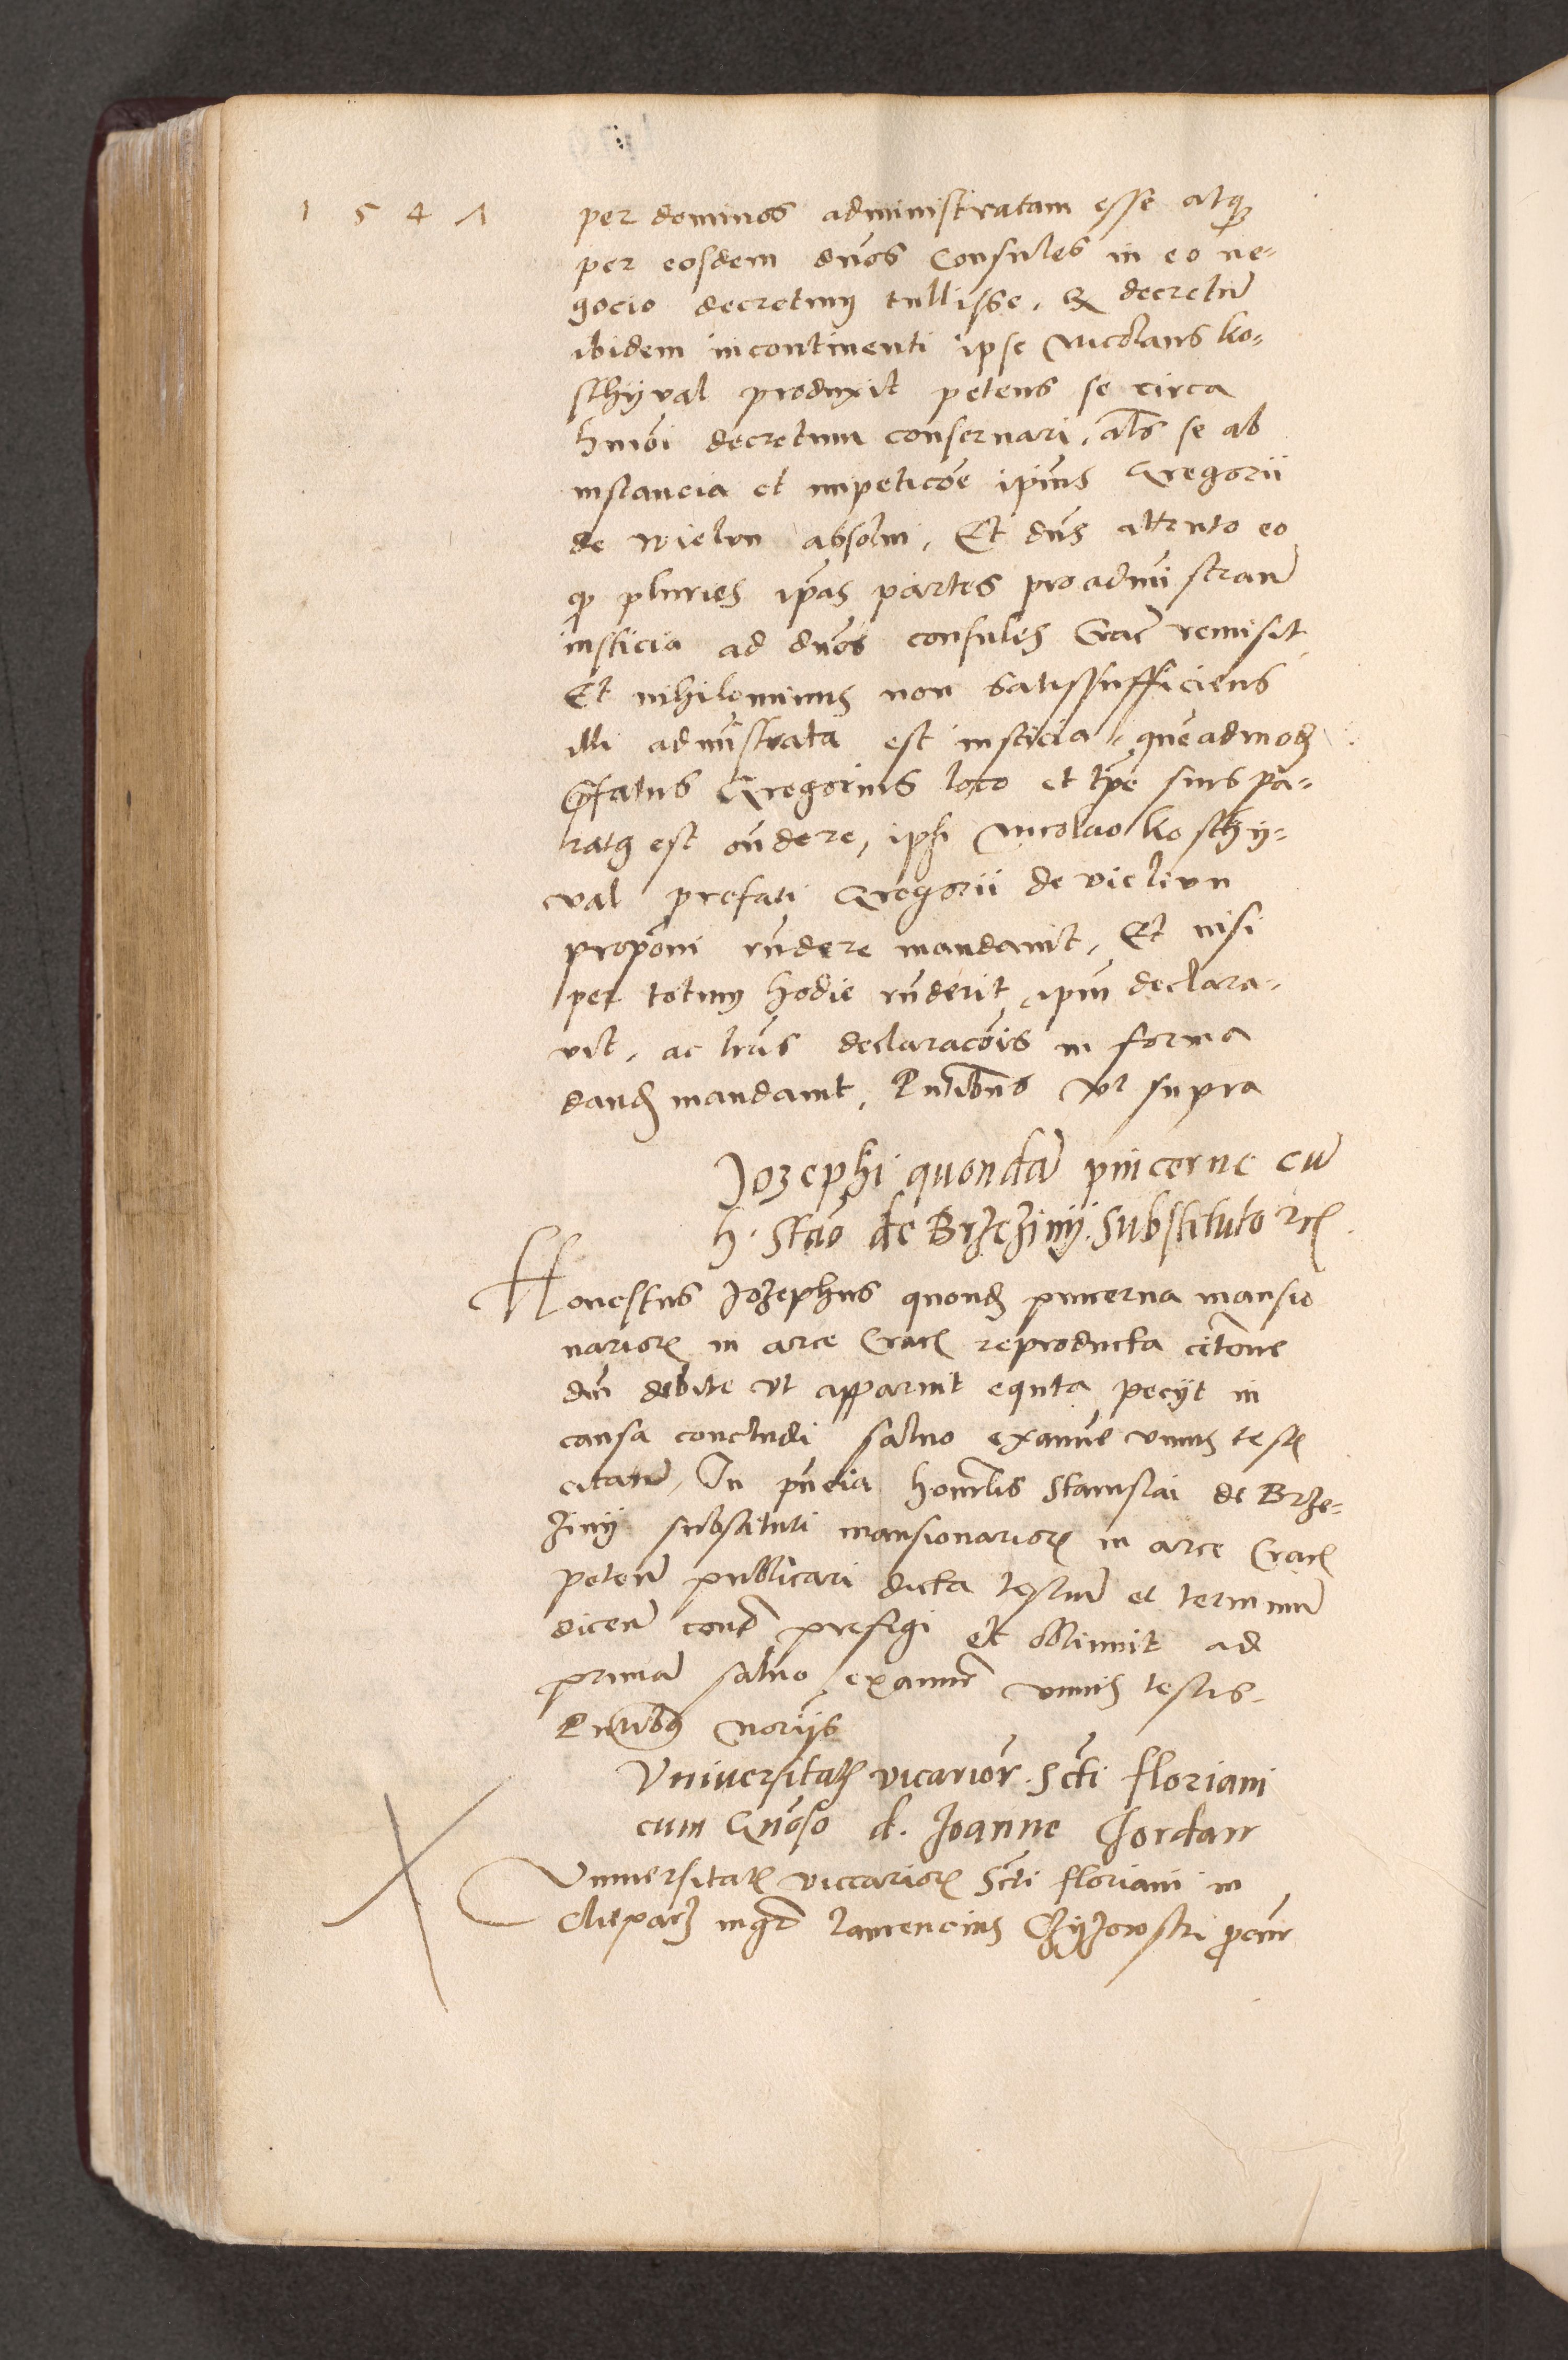 1 5 4 1
per dominos administratam esse atq
per eosdem dnos Consules in eo ne-
gocio decretum tullisse, Q decretu
ibidem incontinenti ipse Nicolaus Ko-
schyval produxit petens se circa
hmoi decretum conservari, als se ab
instancia et impeticoe ipius Gregorii
de Wielun absolui, Et dns attento eo
q pluries ipas partes pro admistran
iusticia ad dnos consules Crac remisit
Et nihilominus non satis sufficiens
illi admistrata est iusticia, queadmod
pfatus Gregorius loco et tpe suis pa-
ratus est ondere, ipsi Nicolao Koschy-
val prefati Gregorii de vielun
proponi rndere mandavit, Et nisi
per totum hodie rnderit ipm declara-
vit, ac lras declaracois in forma
dand mandavit, Pntibus vt supra
Jozephi quonda pincerne cu
h. Stao de Brzeziny substituto rs
Honestus Jozephus quond pincerna mansio
narior in arce Crac reproducta citone
dni debite vt apparuit equta petyt in
causa concludi salvo examine vnius test
citan, In pncia honorlis Stanislai de Brze-
ziny substituti mansionarior in arce Crac
peten publicari dicta testiu et terminu
dicen cont prefigi et obtinuit ad
prima salvo examine vnius testis.
Pntibus noriis
Vniversitat vicarior Scti Floriani
cum Gnoso d. Joanne Jordan
Vniversitat viccarior Scti Floriani in
Cleparz mgr Laurencius Czyzowski pcur